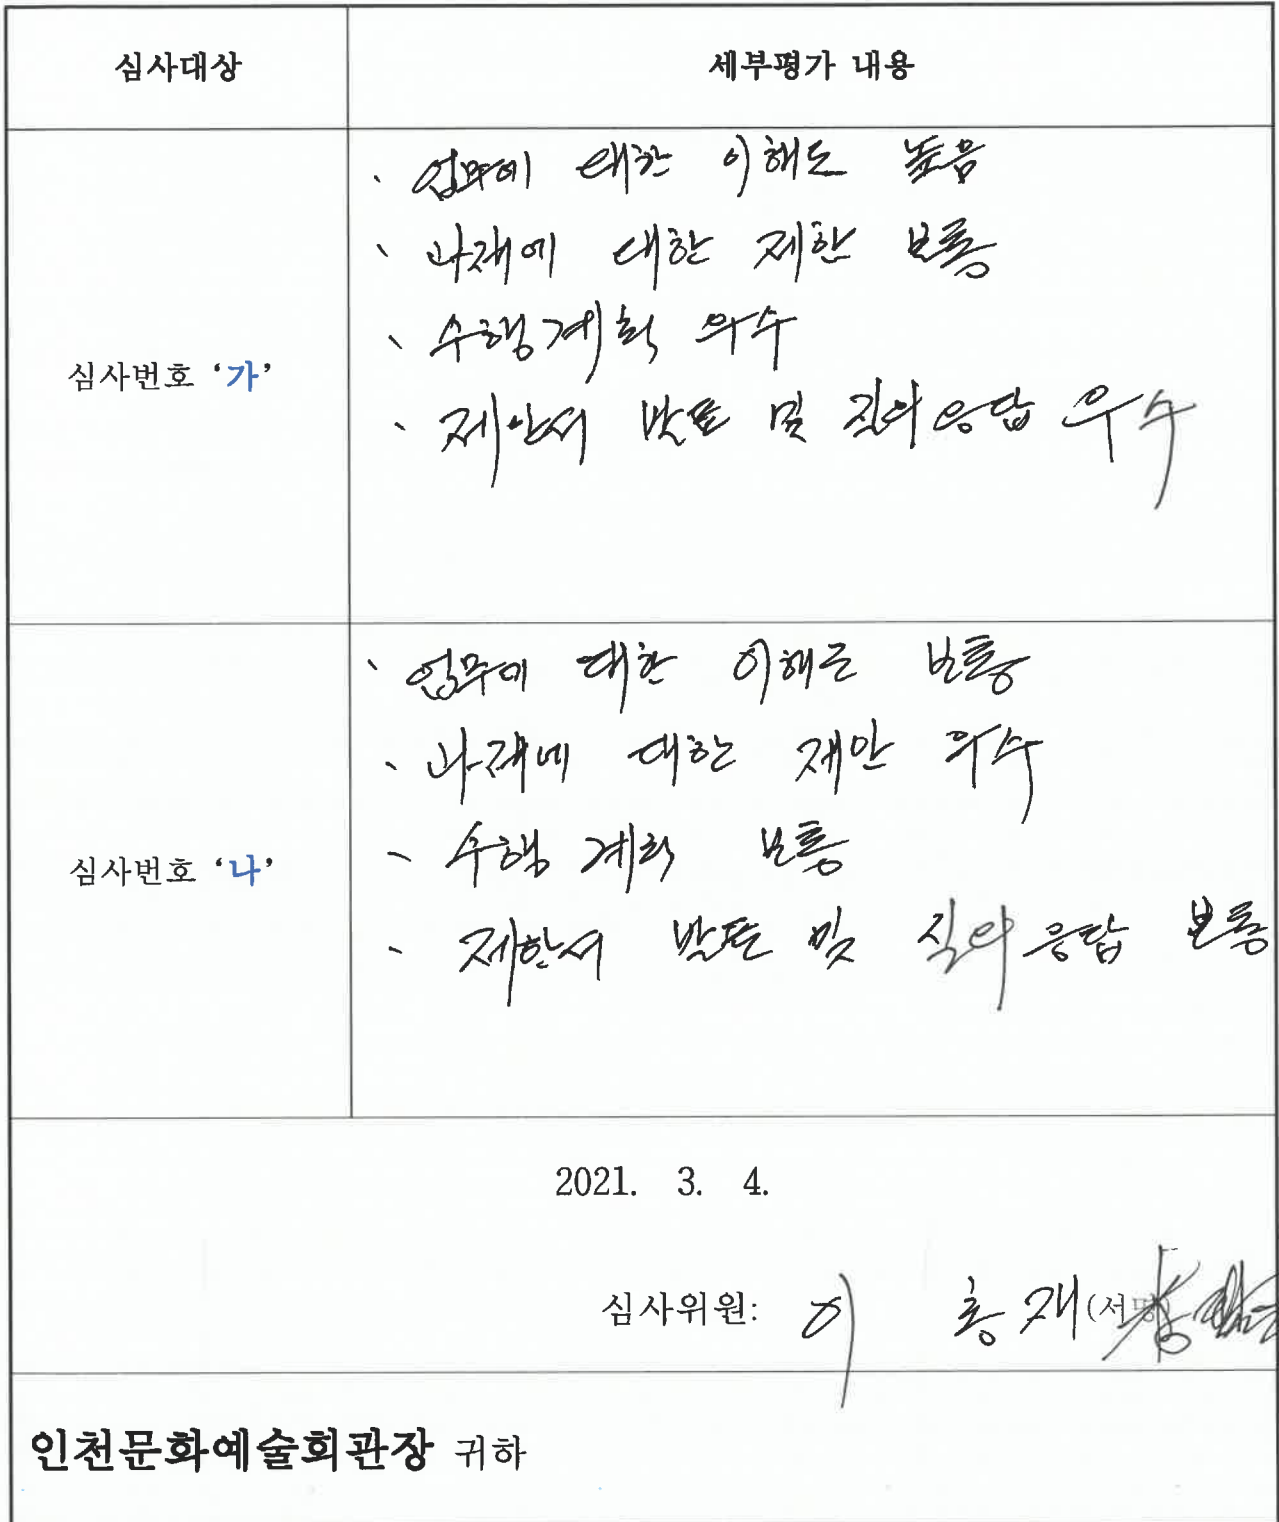 심사대상 세부평가 내용
심사번호 '가'
업무에 대한 이해도 높음
과제에 대한 제한 보통
수행계획 우수
제안서 발표 및 질의응답 우수
심사번호 '나'
업무에 대한 이해도 보통
과제에 대한 제안 우수
수행 계획 보통
제한서 발표 및 질의응답 보통
2021. 3. 4.
심사위원: 이 홍재 (서명)
인천문화예술회관장 귀하